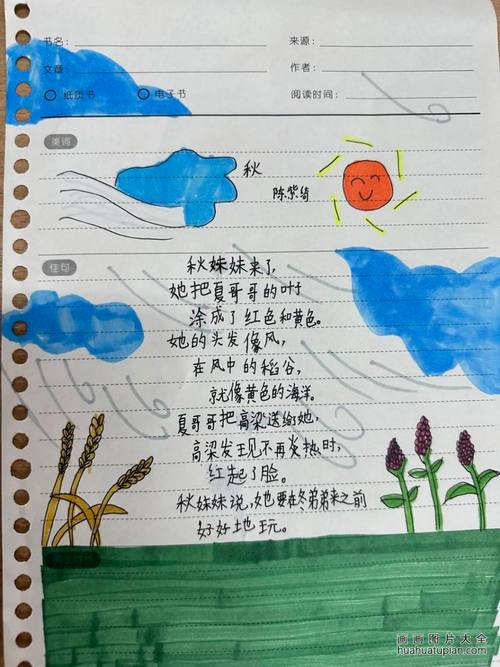 书名： 来源：
文章 作者：
纸质书 电子书 阅读时间：
美词
秋
陈紫绮
佳句
秋妹妹来了，
她把夏哥哥的叶子
涂成了红色和黄色。
她的头发像风，
在风中的稻谷，
就像黄色的海洋。
夏哥哥把高梁送给她，
高梁发现不再炎热时，
红起了脸。
秋妹妹说，她要在冬弟弟来之前
好好地玩。
画画图片大全
huahuatupian.com